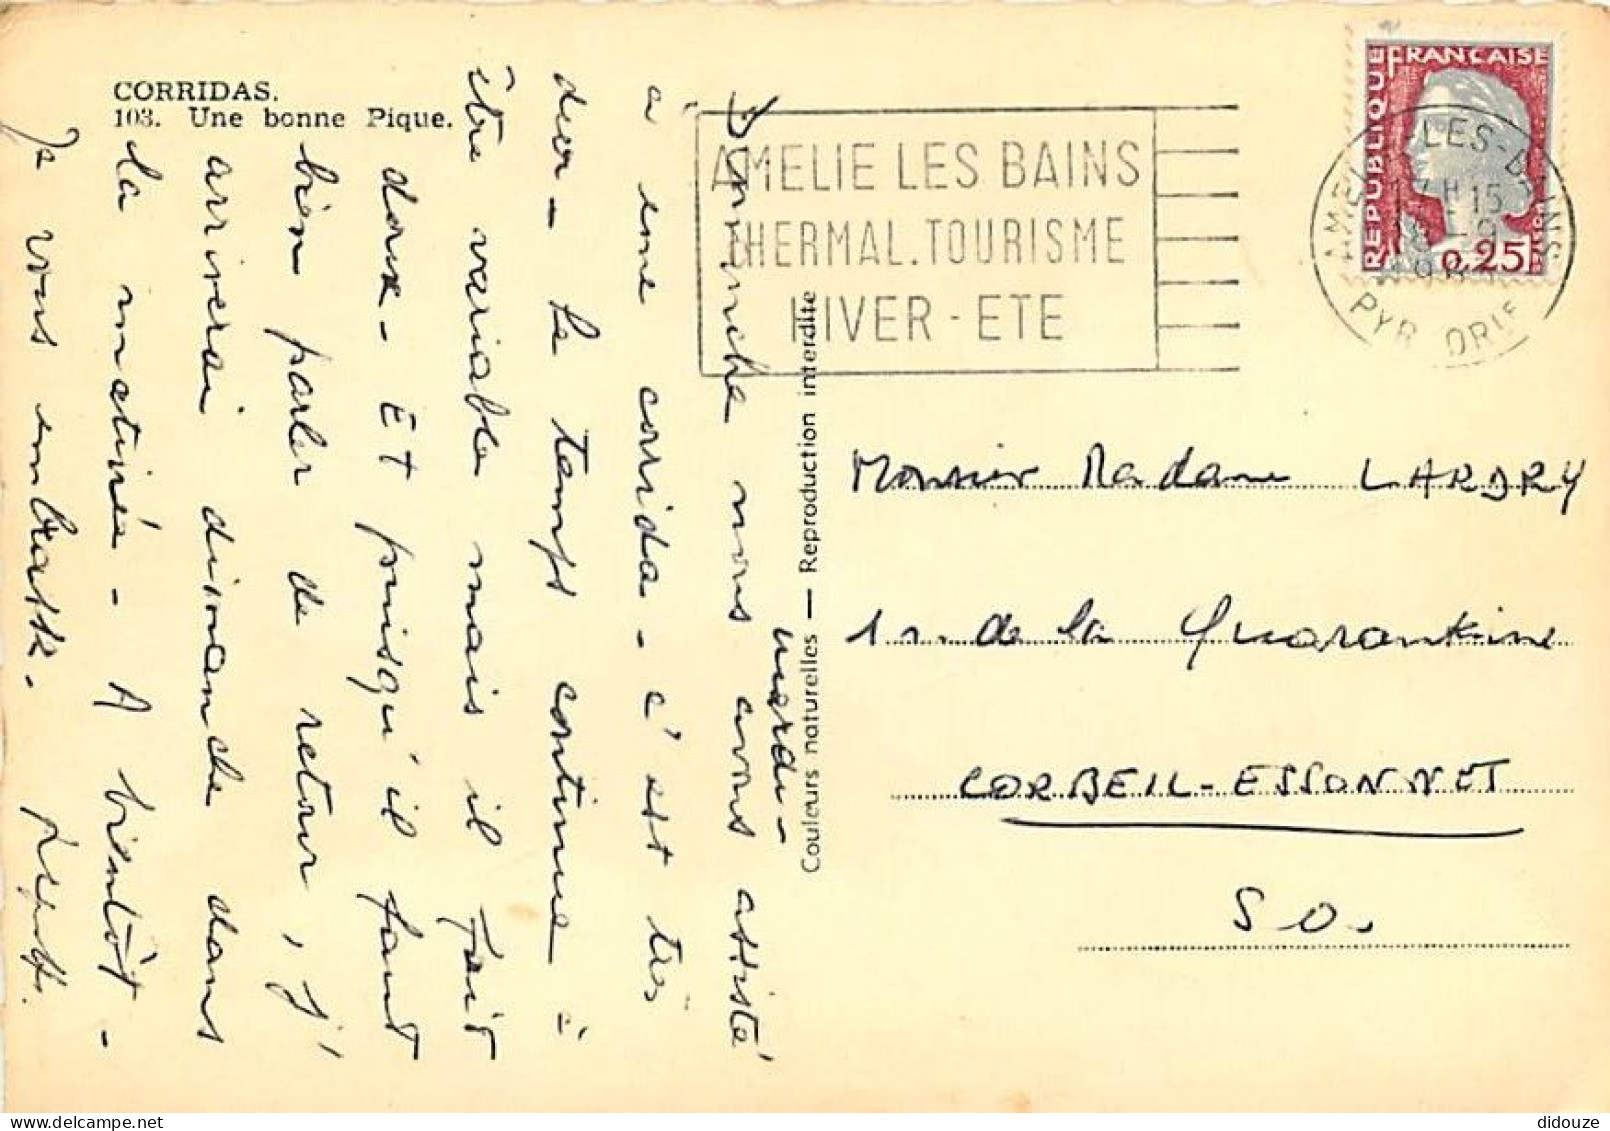 CORRIDAS.
103. Une bonne Pique.
mardi -
Dimanche nous avons assisté
à une corrida - c'est très
dur - Le temps continue à
être variable mais il fait
doux - ET puisqu'il faut
bien parler de retour, j'
arriverai dimanche dans
la matinée - A bientôt -
Je vous embrasse.
Couleurs naturelles — Reproduction interdite
AMELIE LES BAINS
THERMAL.TOURISME
HIVER - ETE
REPUBLIQUE FRANÇAISE
0,25
DECARIS
AMELIE-LES-BAINS
17H15
18-9
PYR. ORIE
Monsieur Madame LARDRY
1 r. de la Quarantaine
CORBEIL-ESSONNES
S O.
didouze